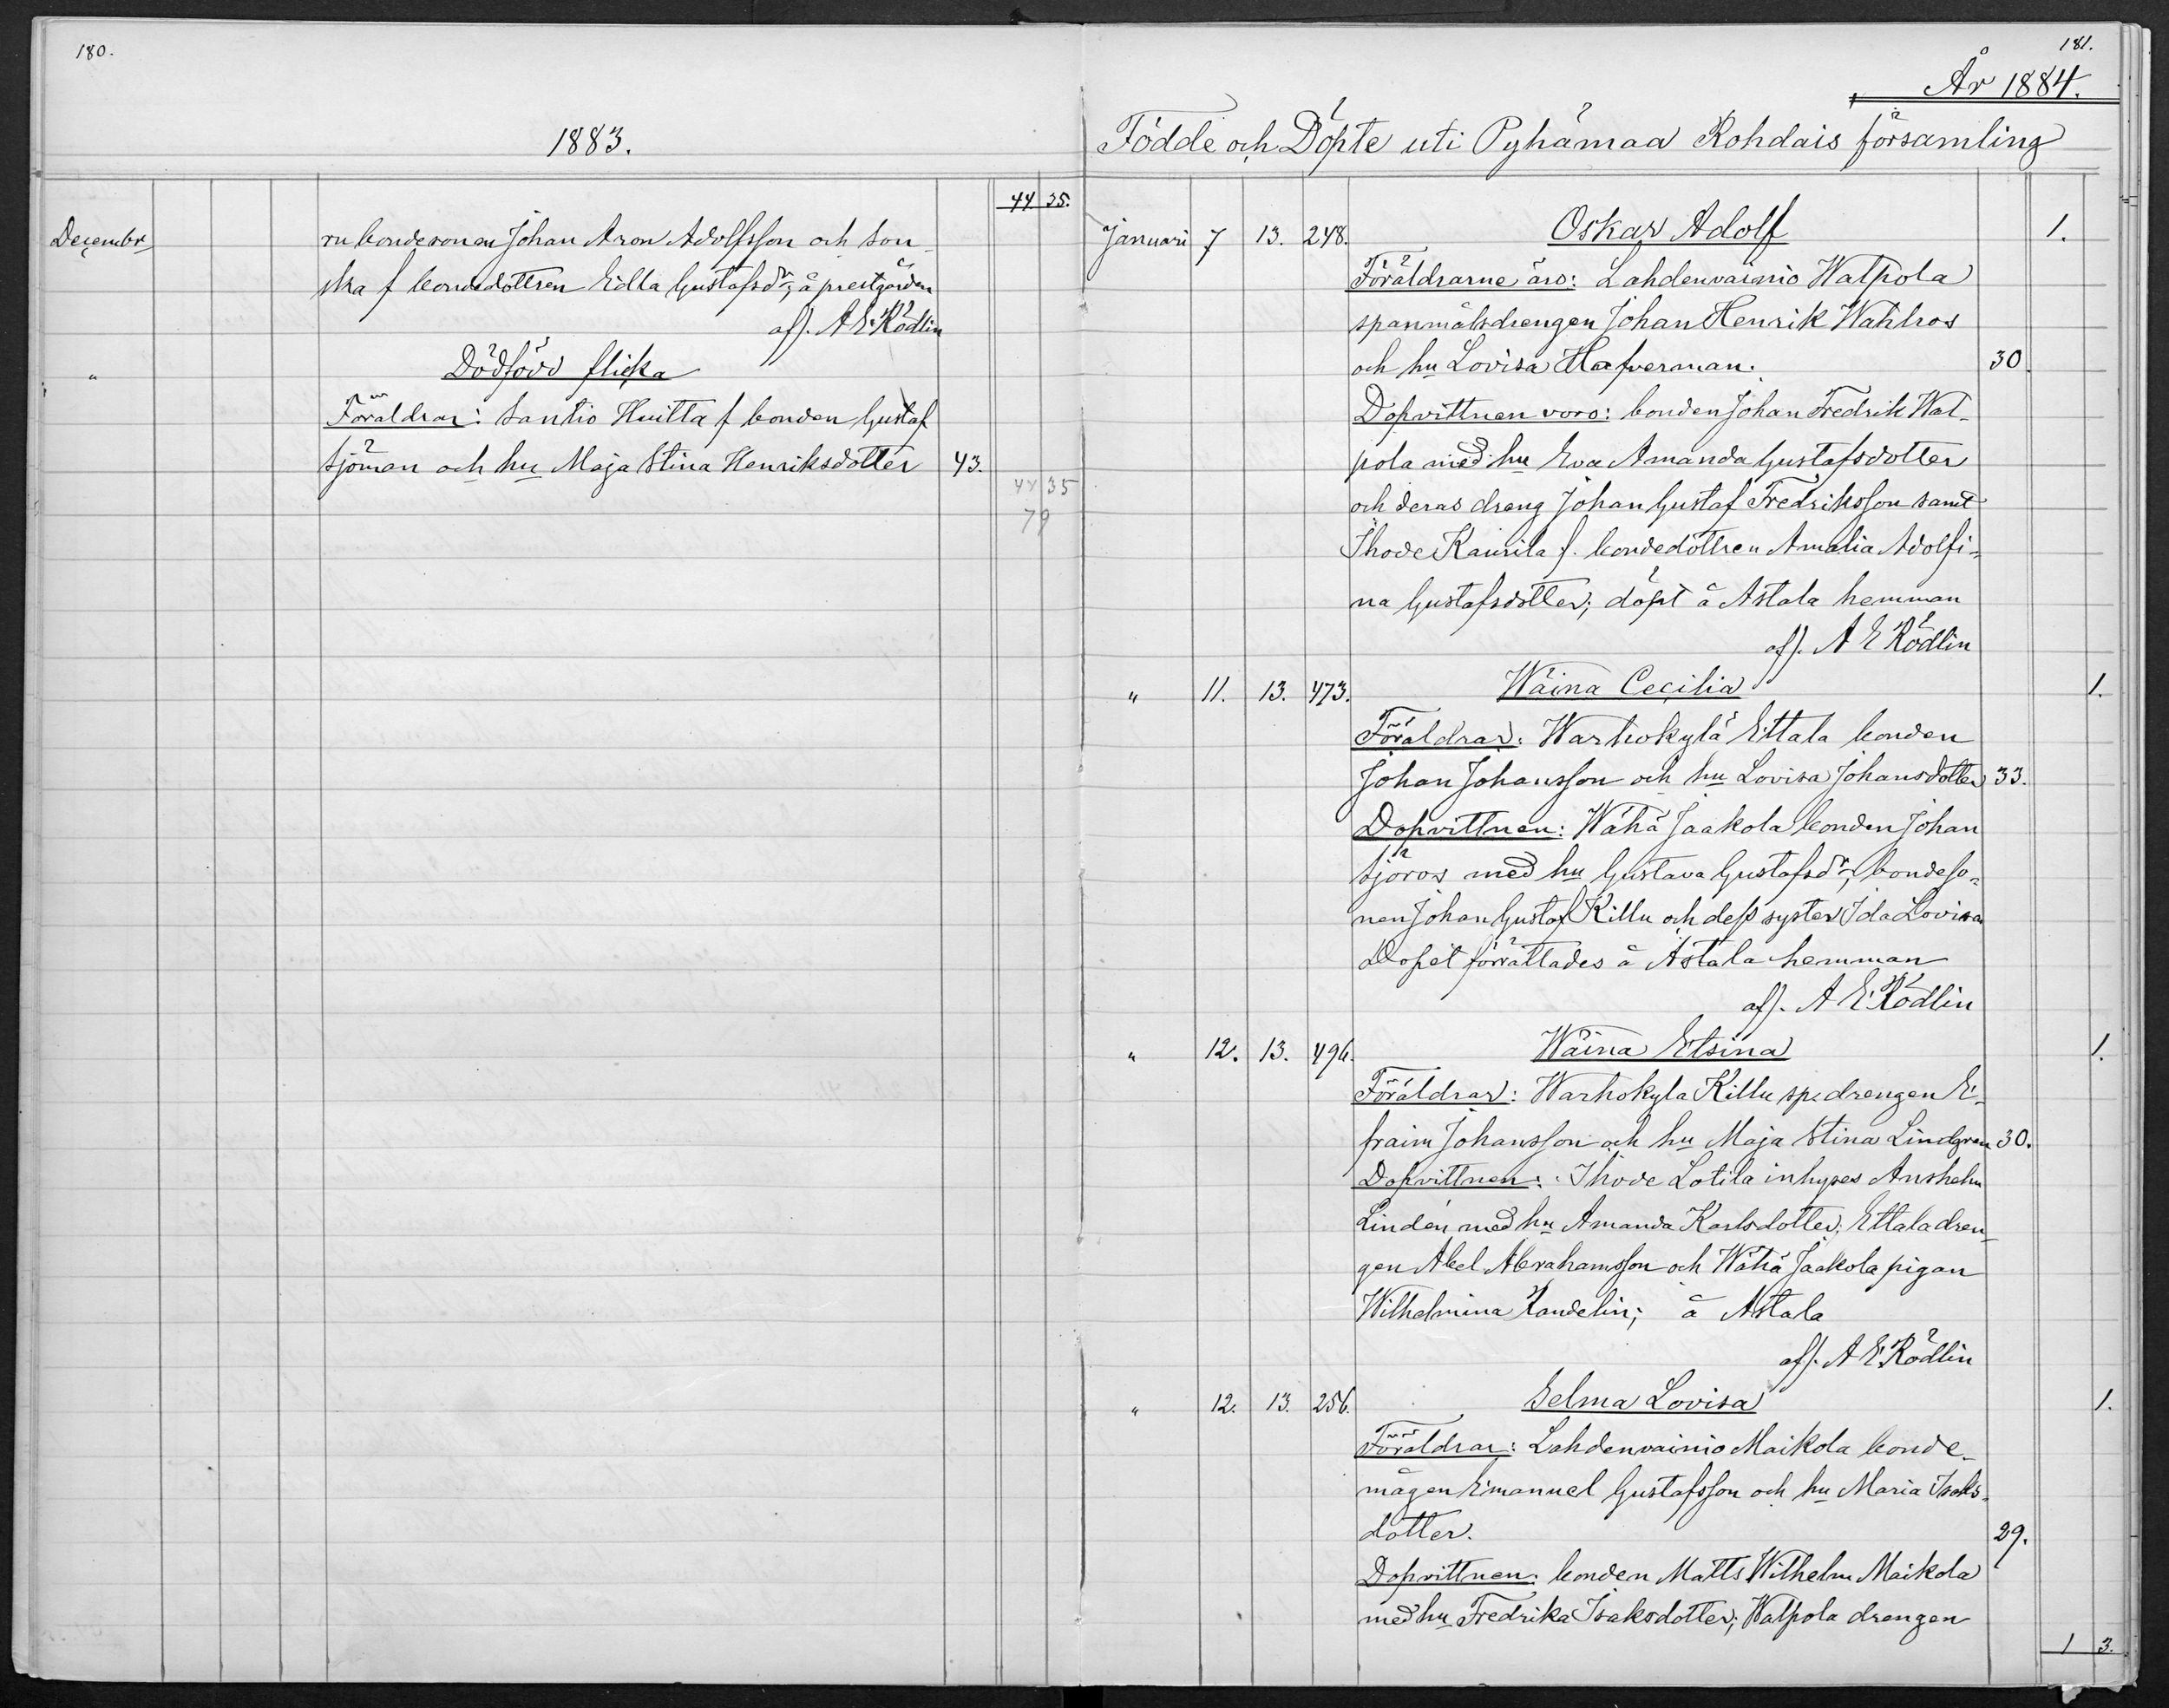 180.
1883.
44. 35.
December
ru bondesonen Johan Aron Adolfsson och Son-
ska f bondedottren Edla Gustafsdr, å prestgården
af). A E Rödlin
"
Dödfödd flicka
Föräldrar: Santio Huitta f bonden Gustaf
Sjöman och hu Maja Stina Henriksdotter 43.
44 35
79
181.
År 1884.
Födde och Döpte uti Pyhämaa Rohdais församling
Januari 7 13. 248. Oskar Adolf 1.
Föräldrarne äro: Lahdenvainio Walpola
spanmålsdrengen Johan Henrik Wahlros
och hu Lovisa Hafverman. 30.
Dopvittnen voro: bonden Johan Fredrik Wal-
pola med hu Eva Amanda Gustafsdotter
och deras dreng Johan Gustaf Fredriksson samt
Ihode Kaurila f. bondedottren Amalia Adolfi-
na Gustafsdotter; döpt å Astala hemman
af). A E Rödlin
" 11. 13. 473. Wäina Cecilia 1.
Föräldrar: Warhokylä Ettala bonden
Johan Johansson och hu Lovisa Johansdotter 33.
Dopvittnen: Wähä Jaakola bonden Johan
Sjöros med hu Gustava Gustafsdr, bondeso-
nen Johan Gustaf Killu och dess syster Ida Lovisa
Dopet förrättades å Astala hemman
af). A E Rödlin
" 12. 13. 496. Wäina Etsina 1.
Föräldrar: Warhokyla Killu sp. drengen E-
fraim Johansson och hu Maja Stina Lindgren 30.
Dopvittnen: Ihode Lotila inhyses Anshelm
Lindén med hu Amanda Karlsdotter; Ettala dren-
gen Abel Abrahamsson och Wähä Jaakola pigan
Wilhelmina Randelin; å Astala
af). A E Rödlin
" 12. 13. 256. Selma Lovisa 1.
Föräldrar: Lahdenvainio Maikola bonde-
mågen Emanuel Gustafsson och hu Maria Isaks-
dotter. 29.
Dopvittnen: bonden Matts Wilhelm Maikola
med hu Fredrika Isaksdotter; Walpola drengen
1 3.